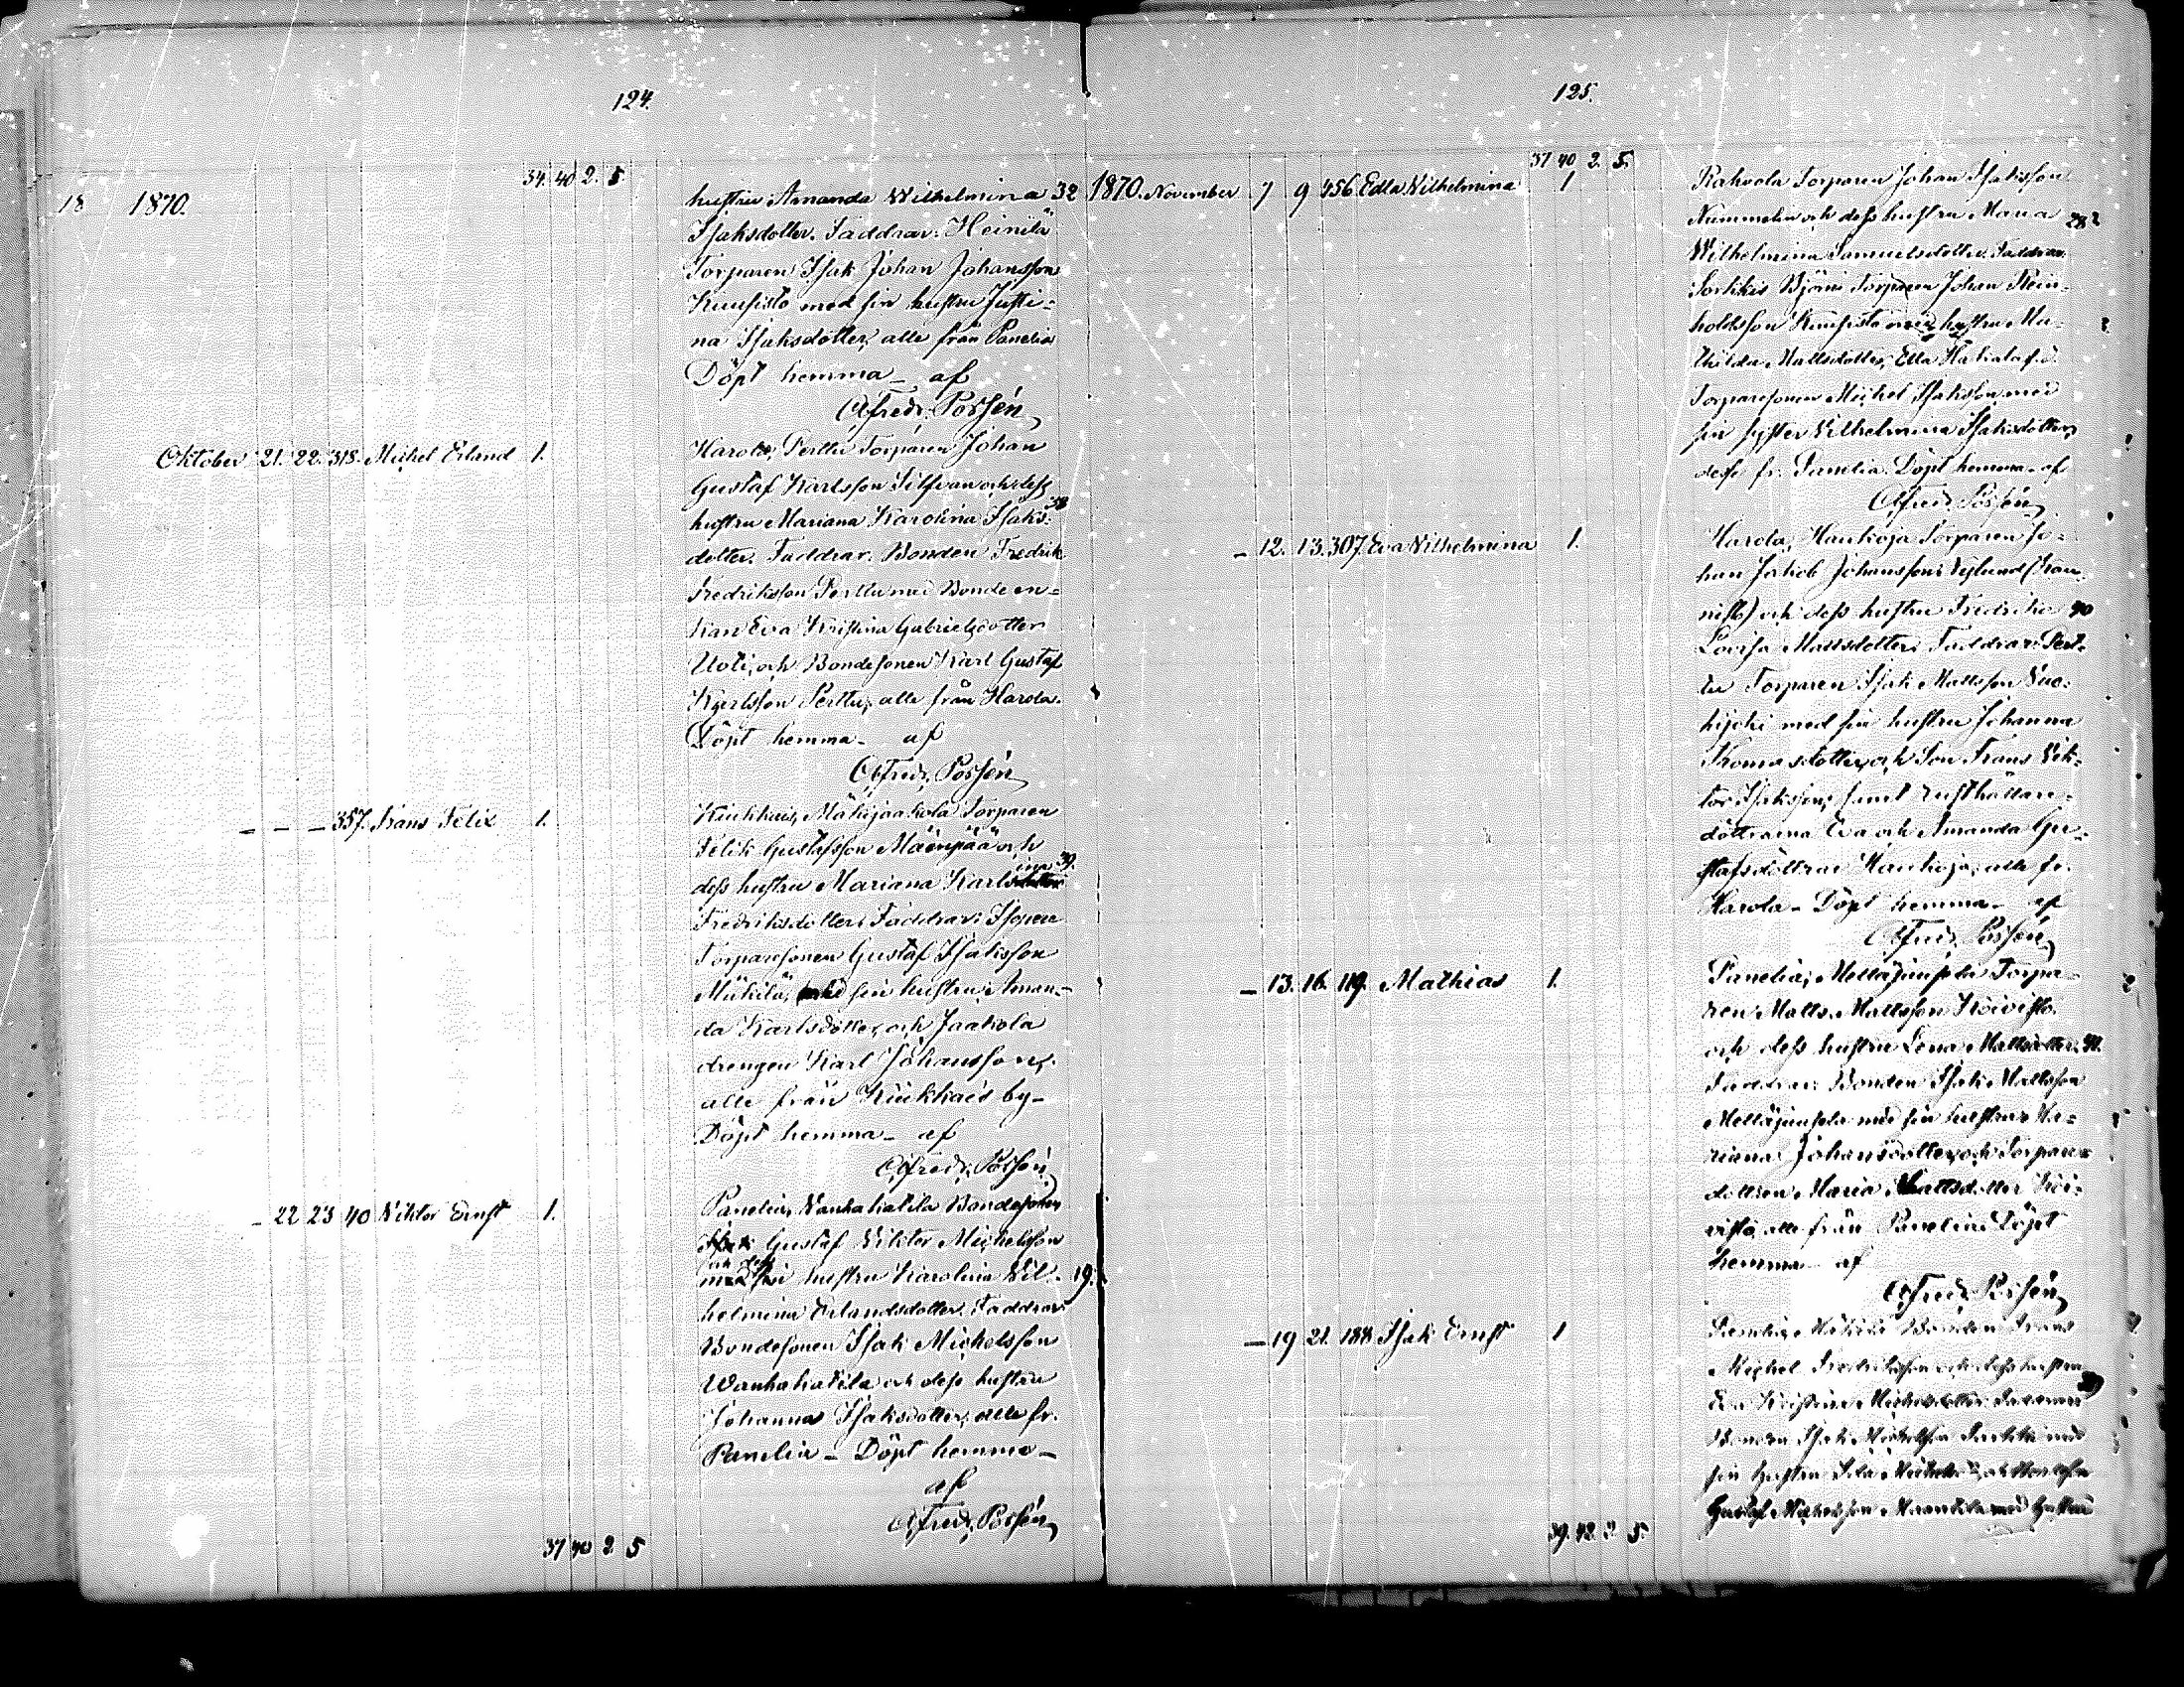 124.
34. 40 2. 5
18 1870.
hustru Amanda Wilhelmina 32
Isaksdotter. Faddrar: Heinilä
Torparen Isak Johan Johansson
Kuusisto med sin hustru Justi-
na Isaksdotter, alle från Panelia
Döpt hemma – af
Alfred Possén
Oktober 21. 22. 318. Michel Erland 1.
Harola, Perttu Torparen Johan
Gustaf Karlsson Silfvan och dess
hustru Mariana Karolina Isaks- 38
dotter. Faddrar. Bonden Fredrik
Fredriksson Perttu med Bondeen-
kan Eva Kristina Gabrielsdotter
Uoti, och Bondesonen Karl Gustaf
Karlsson Perttu, alle från Harola.
Döpt hemma – af
Alfred Possén
– – – 357. Frans Felix 1.
Kiukkais, Mäkijaakola Torparen
Felik Gustafsson Mäenpää och
dess hustru Mariana Karolina 39.
Fredriksdotter. Faddrar:
Torparesonen Gustaf Isaksson
Mäkilä, med sin hustru Aman-
da Karlsdotter, och Jaakola
drengen Karl Johansson,
alle från Kiukkais by –
Döpt hemma – af
Alfred Possén
– 22 23 40 Viktor Ernst 1.
Panelia, Vanhakatila Bondesonen
Gustaf Viktor Michelsson
och dess
med sin hustru Karolina Vil- 19.
helmina Erlandsdotter. Faddrar
Bondesonen Isak Michelsson
Wanhakatila och dess hustru
Johanna Isaksdotter, alle fr.
Panelia – Döpt hemma –
af
Alfred Possén
37 40 2 5
125.
37 40 2. 5.
1870. November 7 9 456. Edla Vilhelmina 1
Rahvola Torparen Johan Isaksson
Nummelin och dess hustru Maria 28
Wilhelmina Samuelsdotter. Faddrar:
Sorkkis Björni Torparen Johan Rein-
holdsson Kuusisto med hustru Ma-
thilda Mattsdotter, Ella Hakala f.d.
Torparesonen Michel Isaksson med
sin syster Vilhelmina Isaksdotter,
desse fr. Panelia. Döpt hemma – af
Alfred Possén
– 12. 13. 307. Eva Vilhelmina 1.
Harola, Haukoja Torparen Jo-
han Jakob Johansson Nylund (Kau-
nisto) och dess hustru Fredrika 40
Lovisa Mattsdotter. Faddrar: Pert-
tu Torparen Isak Mattsson Vuo-
hijoki med sin hustru Johanna
Thomasdotter, och Son Frans Vik-
tor Isaksson, samt rusthållare-
döttrarna Eva och Amanda Gu-
stafsdöttrar Haukoja, alle fr.
Harola – Döpt hemma – af
Alfred Possén
– 13. 16. 119. Mathias 1.
Panelia, Mellajuupola Torpa-
ren Matts Mattsson Koivisto
och dess hustru Lena Mattsdotter. 41.
Faddrar: Bonden Isak Mattsson
Mellajuupola med sin hustru Ma-
riana Johansdotter, och Torpare-
dottren Maria Mattsdotter Koi-
visto, alle från Panelia. Döpt
hemma – af
Alfred Possén
– 19 21. 188. Isak Ernst 1
Panelia, Mäkilä Bonden Frans
Michel Fredriksson och dess hustru
Eva Kristina Michelsdotter. Faddrar: 39
Bonden Isak Michelsson med
sin hustru
Gustaf Michelsson med hustru
39. 42. 2. 5.